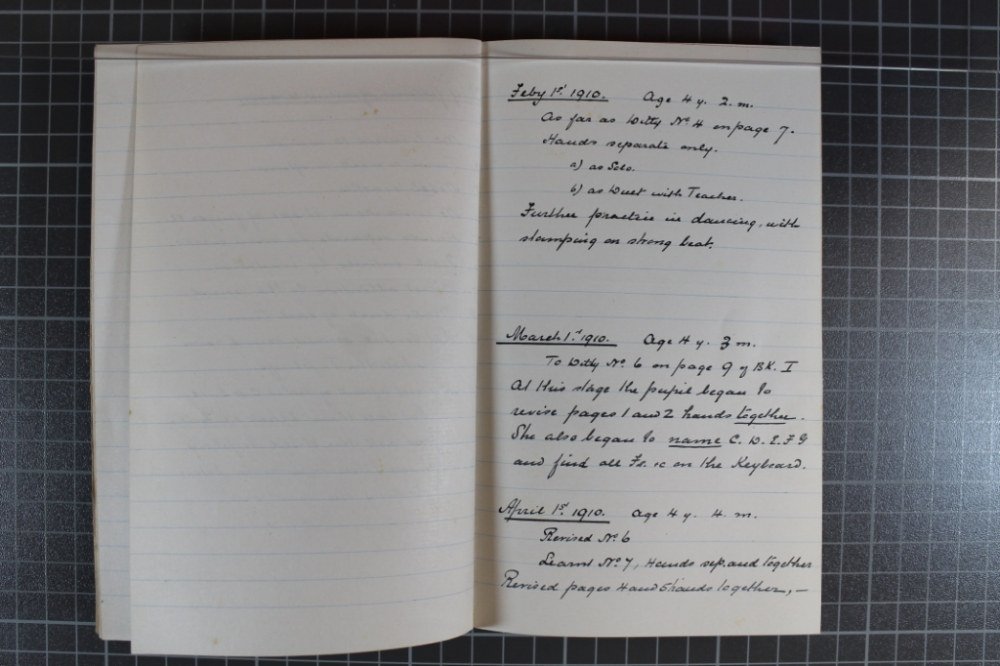 Feby 1st 1910. Age 4 y. 2. m.
As far as Ditty No 4 on page 7.
Hands separate only.
a) as Solo.
b) as Duet with Teacher.
Further practice in dancing, with
stamping on strong beat.
March 1st 1910. Age 4 y. 3 m.
To Ditty No. 6 on page 9 of BK. I
At this stage the pupil began to
revise pages 1 and 2 hands together.
She also began to name C. D. E. F G
and find all Fs. &c on the Keyboard.
April 1st 1910. age 4 y. 4. m.
Revised No 6
Learnt No 7, Hands sep. and together
Revised pages 4 and 5 hands together, —